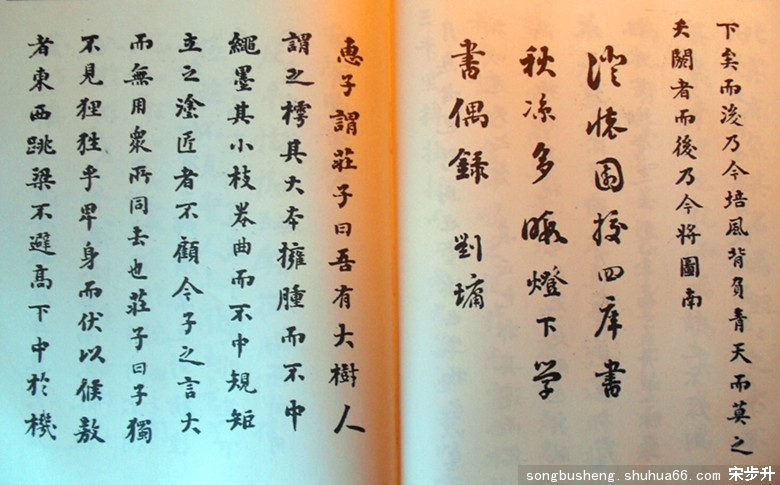 下矣而後乃今培風背負青天而莫之
夭閼者而後乃今將圖南
澄懷園挍四庫書
秋凉多暇燈下学
書偶録 劉墉
惠子謂莊子曰吾有大樹人
謂之樗其大本擁腫而不中
繩墨其小枝卷曲而不中規矩
立之塗匠者不顧今子之言大
而無用衆所同去也莊子曰子獨
不見狸狌乎卑身而伏以候敖
者東西跳梁不避高下中於機
songbusheng.shuhua66.com 宋步升